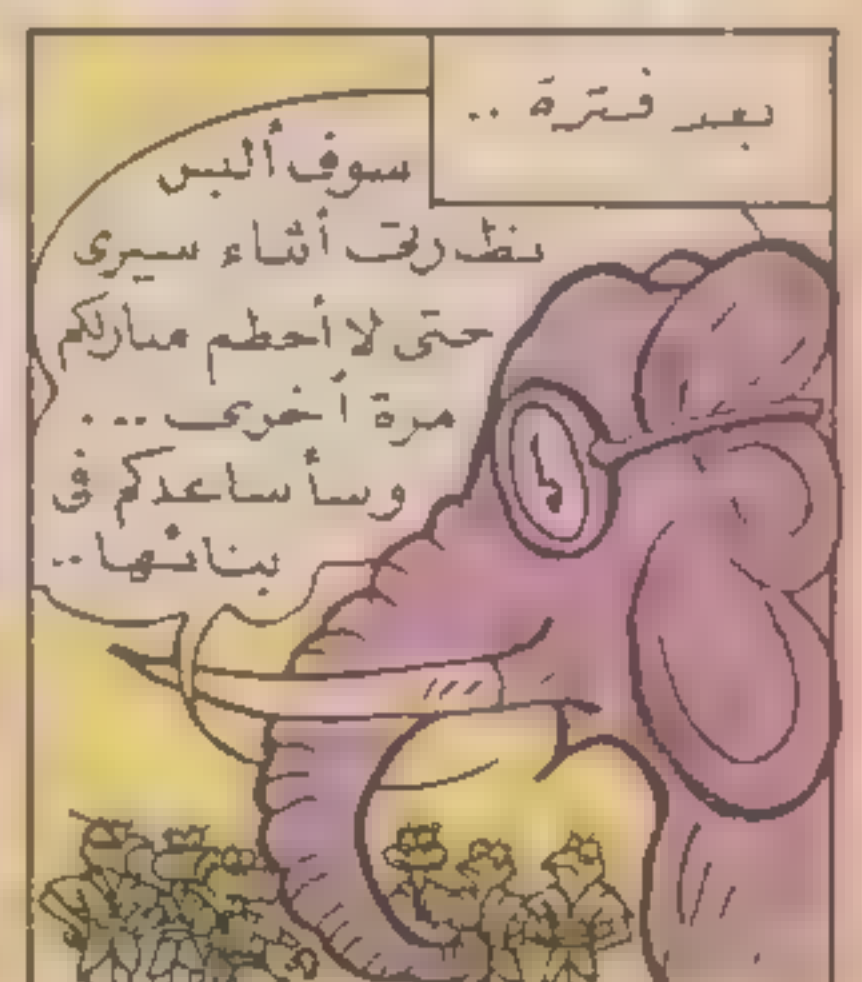 بعد فترة ..
سوف ألبس
نظارتى أثناء سيرى
حتى لا أحطم منازلكم
مرة أخرى ...
وسأساعدكم فى
بنائها ..